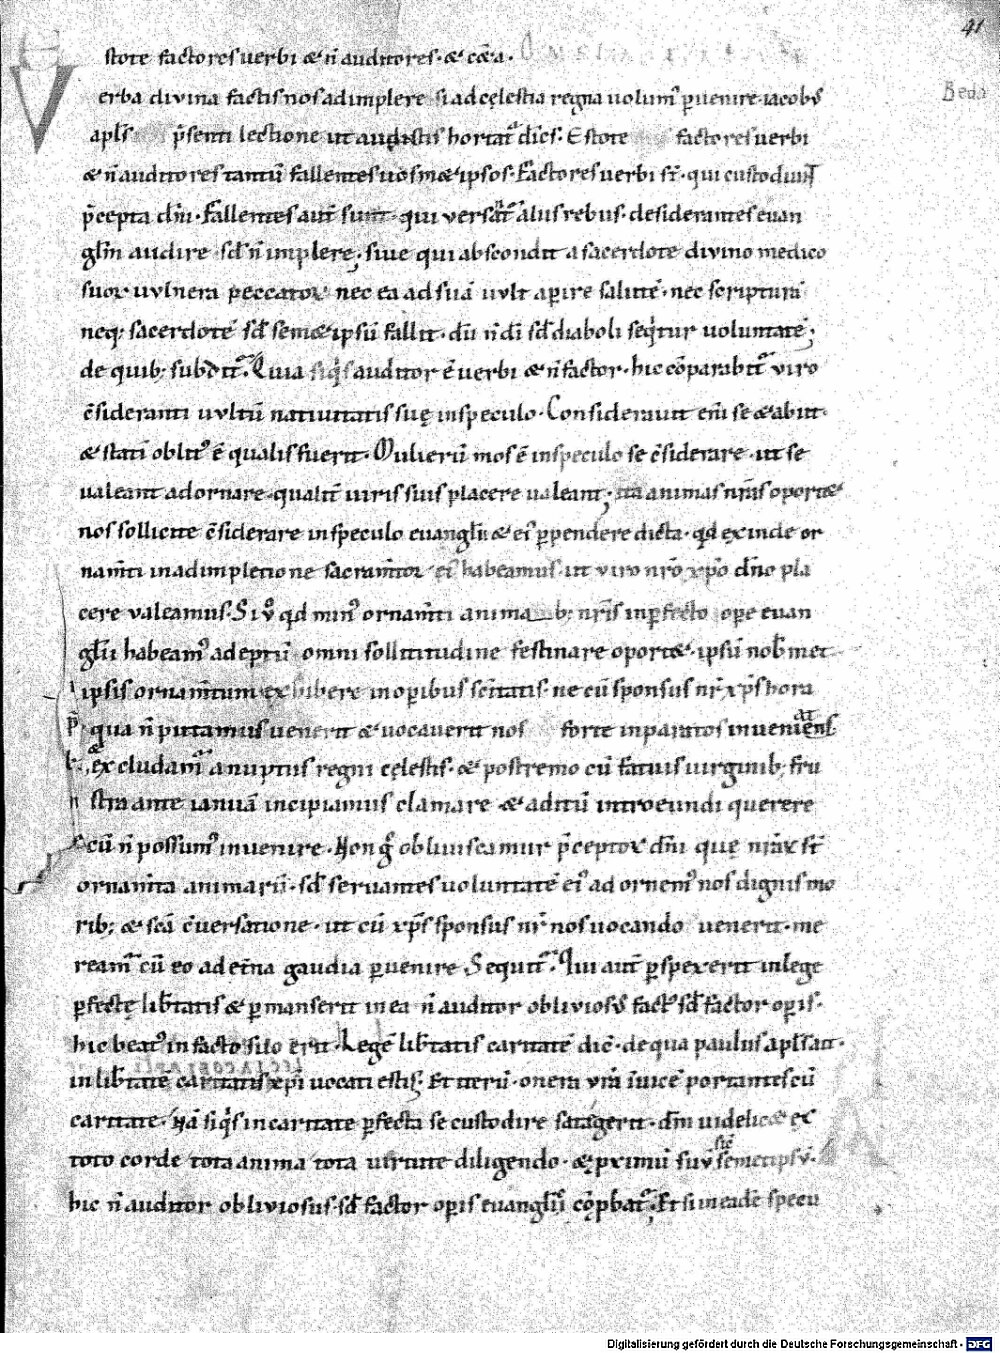 41
stote factores uerbi & n̄ auditores · & cȩ̄a ·
Beda
Verba divina factis nos adimplere si ad cęlestia regna uolum' ꝑuenire · iacobus
apl̄s p̄senti lectione ut audistis hortat᷒ dic̄s · Estote factores uerbi
& n̄ auditores tantū fallentes uosm&ipsos · Factores uerbi st̄ · qui custodiunt
p̄cepta dn̄i · Fallentes aut̄ sunt · qui versant᷒ aliis rebus · desiderantes euan
glm̄ audire · sȩd n̄ implere · siue qui abscondit a sacerdote divino medico
suoꝝ uulnera peccatoꝝ nec ea ad suā uult aꝑire salutē · nec scripturā
neq; sacerdotē sed sem&ipsū fallit · dū n̄ dī sed diaboli seqͥtur uoluntatē ;
de quib; subdit᷒ · Quia siqͥs auditor ē uerbi & n̄ factor · hic cōparabit᷒ viro
c̄sideranti uultū natiuitatis suę in speculo · Considerauit em̄ se & abiit ·
& statī oblit' ē qualis fuerit · Mulierū mos ē in speculo se c̄siderare · ut se
ualeant adornare · qualit̄ uiris suis placere ualeant ; ita animas nr̄as oport&
nos sollicite c̄siderare in speculo euanglii & ei' ꝑpendere dicta · qd exinde or
nam̄ti in adimpletione sacram̄toꝝ ei' habeamus · ut viro nr̄o xp̄o dn̄o pla
cere valeamus · Si v̊ qd min' ornam̄ti animab; nr̄is inꝑfecto oꝑe euan
glii habeam' adeptū omni sollicitudine festinare oport& · ipsū nob̄ met
ipsis ornam̄tum exhibere in oꝑibus sc̄itatis · ne cū sponsus nr̄ xp̄s hora
qua n̄ putamus uenerit & uocauerit nos forte inparatos inueniens
& excludam᷒ a nuptiis regni cęlestis · & postremo cū fatuis uirginib; fru
stra ante ianuā incipiamus clamare & aditū introeundi querere
cū n̄ possum' inuenire · Non g̊ obliuiscamur p̄ceptoꝝ dn̄i que nr̄aꝝ st̄
ornam̄ta animarū · sed seruantes uoluntatē ei' adornem' nos dignis mo
rib; & sc̄a c̄uersatione · ut cū xp̄s sponsus nr̄ nos uocando uenerit · me
reamᷓ cū eo ad et̄na gaudia ꝑuenire · Sequit᷒ · Qui aut̄ ꝑspexerit in lege
ꝑfectę lib̄tatis & ꝑmanserit in ea n̄ auditor obliviosus fact' sed factor oꝑis ·
hic beat' in facto suo erit · Legē lib̄tatis caritatē dic̄ · de qua paulus apl̄s ait ·
in lib̄tate caritatis xp̄i uocati estis · Et iterū · onera vr̄a īuicē portantes cū
caritate · Nā siqͥs in caritate ꝑfecta se custodire satagerit · dm̄ uidelic& ex
toto corde tota anima tota uirtute diligendo · & pximū suū sic̄ semetipsū ·
hic n̄ auditor obliviosus · sed factor oꝑis euanglii cōꝑbat᷒ · Et si in eadē specu
Digitalisierung gefördert durch die Deutsche Forschungsgemeinschaft - DFG